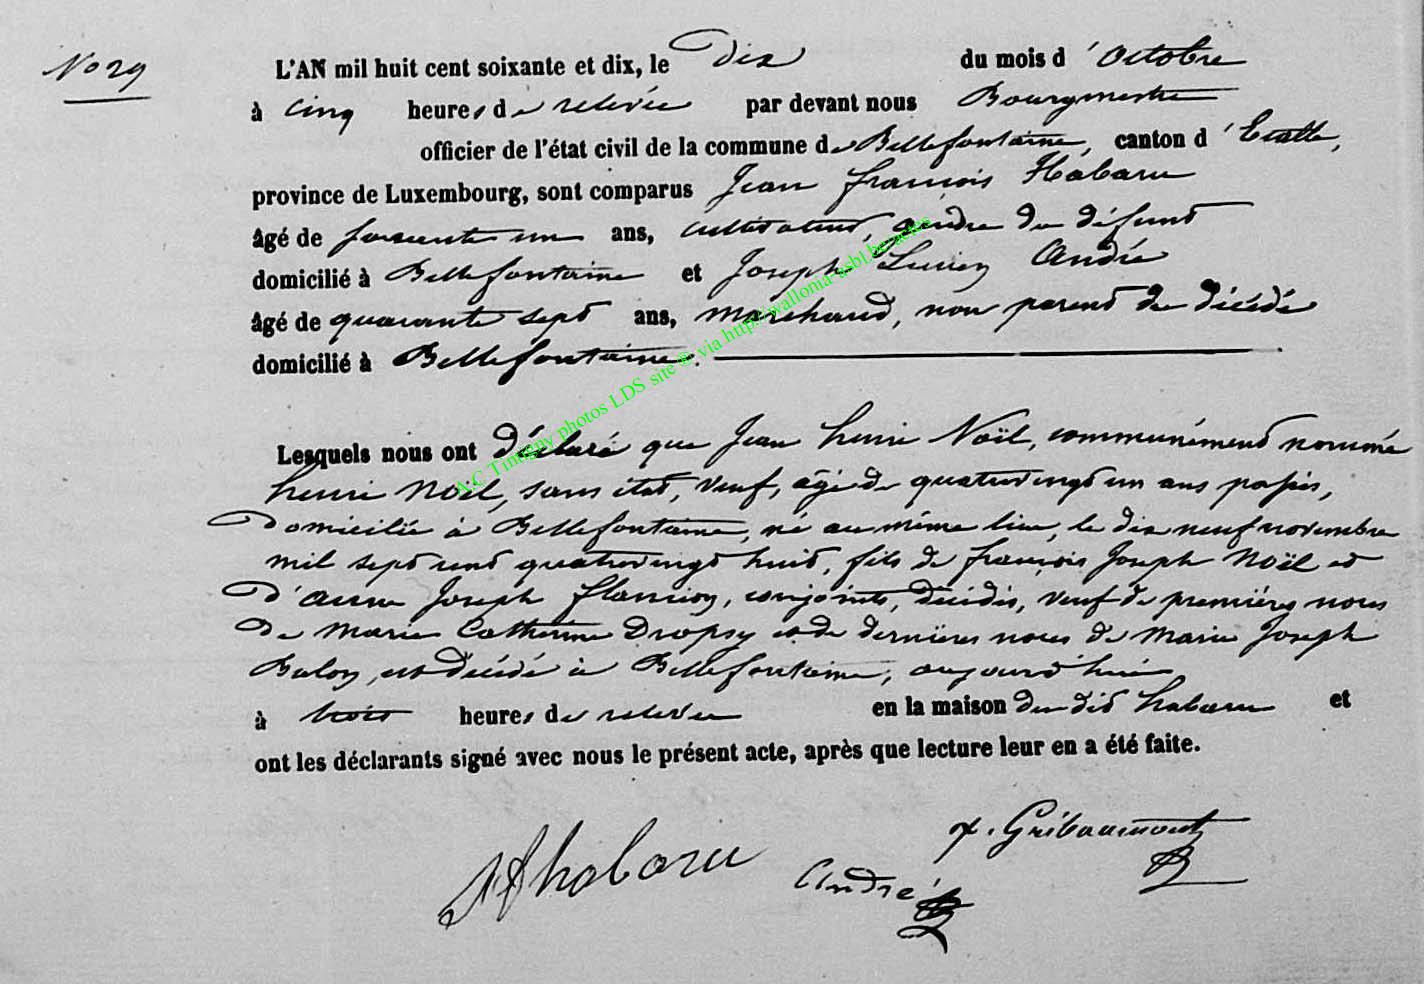 No 29
L'AN mil huit cent soixante et dix, le Dix du mois d'Octobre
à Cinq heures de relevée par devant nous Bourgmestre
officier de l'état civil de la commune de Bellefontaine, canton d'Etalle,
province de Luxembourg, sont comparus Jean françois Habaru
âgé de soixante un ans, cultivateur, Gendre du défunt
domicilié à Bellefontaine et Joseph Lucien André
âgé de quarante sept ans, marchand, non parent du décédé
domicilié à Bellefontaine.
Lesquels nous ont déclaré que Jean henri Noël, communément nommé
henri Noël, sans état, veuf, âgé de quatrevingt un ans passés,
Domicilié à Bellefontaine, né au même lieu, le dix neuf novembre
mil sept cent quatrevingt huit, fils de françois Joseph Noël et
D'anne Joseph flamion, conjoints, décédés, veuf de premières noces
De Marie Catherine Dropsy et de dernières noces de Marie Joseph
Balon, est décédé à Bellefontaine, aujourd'hui
à trois heures de relevée en la maison du dit habaru et
ont les déclarants signé avec nous le présent acte, après que lecture leur en a été faite.
habaru André Gribaumont
A.C Tintigny photos LDS site © via http://wallonia-asbl.be/actes